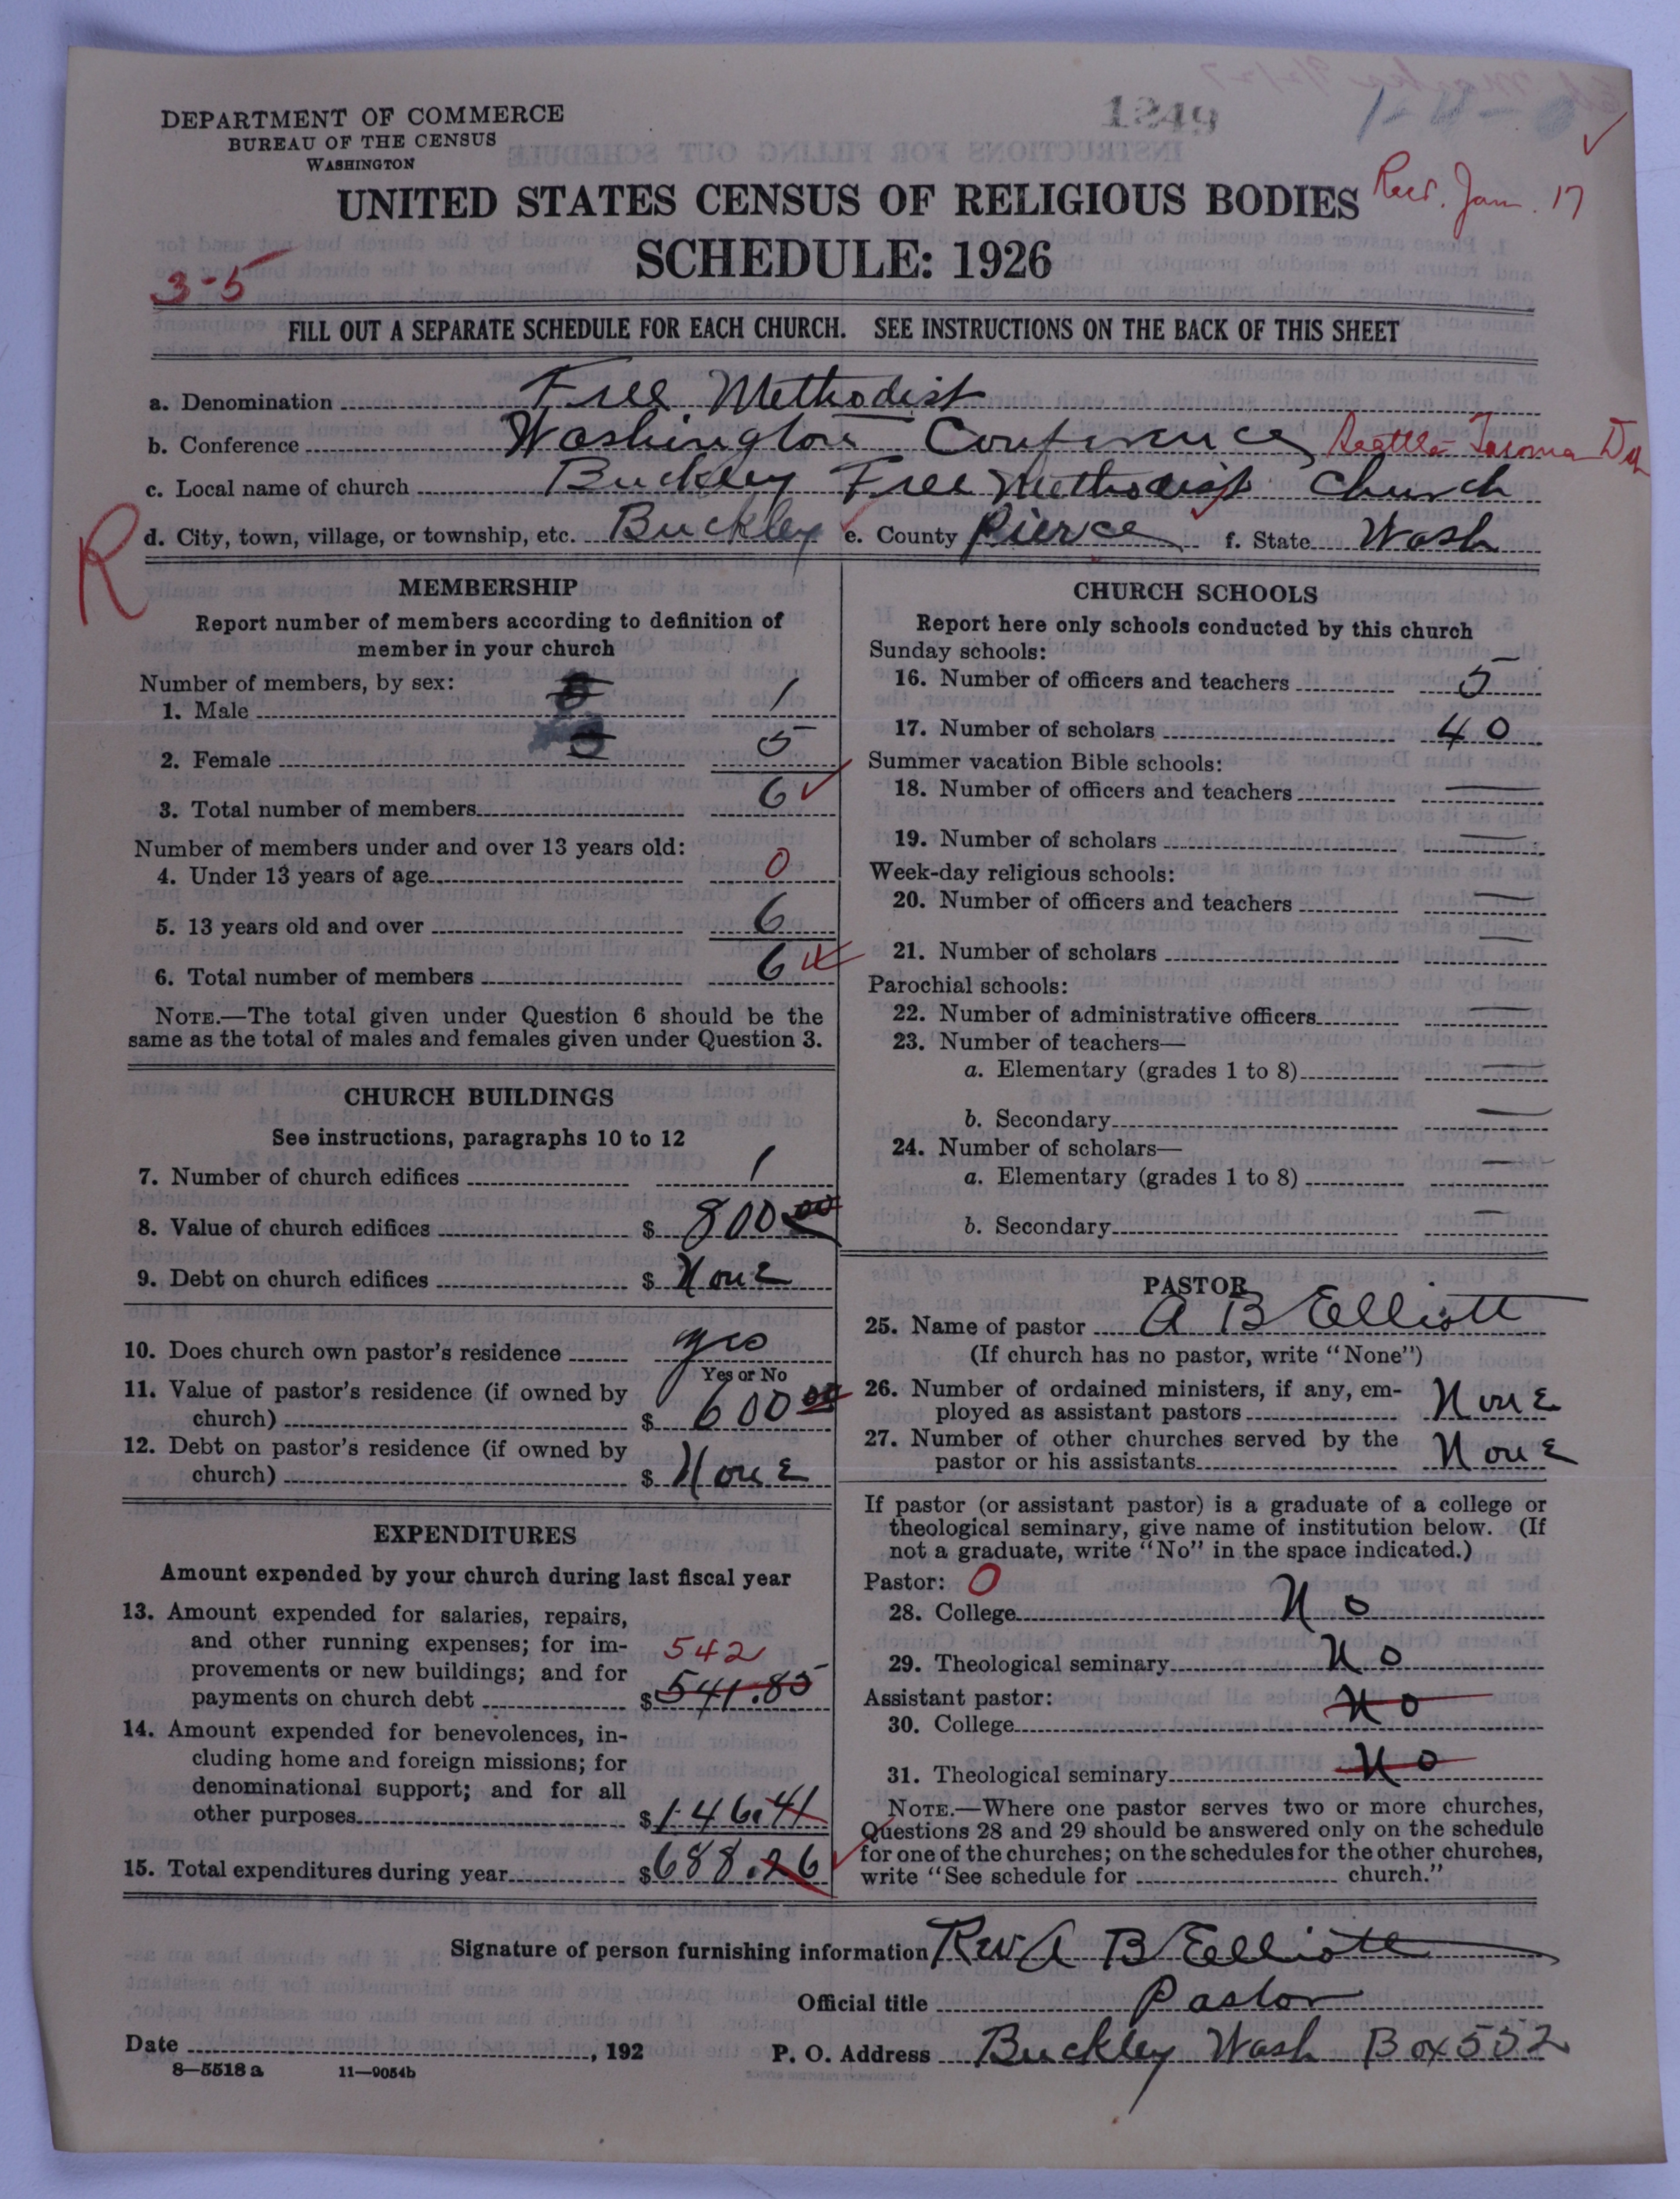 1249
DEPARTMENT OF COMMERCE
BUREAU OF THE CENSUS
WASHINGTON
UNITED STATES CENSUS OF RELIGIOUS BODIES
Recd. Jan. 17
SCHEDULE: 1926
3-5
FILL OUT A SEPARATE SCHEDULE FOR EACH CHURCH. SEE INSTRUCTIONS ON THE BACK OF THIS SHEET
a. Denomination Free Methodist
b. Conference Washington Conference Seattle Tacoma
c. Local name of church Buckley Free Methodist Church
d. City, town, village, or township, etc. Buckley e. County Pierce f. State Wash
R
MEMBERSHIP
Report number of members according to definition of
member in your church
Number of members, by sex:
1. Male 1
2. Female 5
3. Total number of members 6
Number of members under and over 13 years old:
4. Under 13 years of age 0
5. 13 years old and over 6
6. Total number of members 6
NOTE.—The total given under Question 6 should be the
same as the total of males and females given under Question 3.
CHURCH BUILDINGS
See instructions, paragraphs 10 to 12
7. Number of church edifices 1
8. Value of church edifices $ 800.00
9. Debt on church edifices $ None
10. Does church own pastor's residence yes
Yes or No
11. Value of pastor's residence (if owned by
church) $ 600 00
12. Debt on pastor's residence (if owned by
church) $ None
EXPENDITURES
Amount expended by your church during last fiscal year
13. Amount expended for salaries, repairs,
and other running expenses; for im-
provements or new buildings; and for 542
payments on church debt $ 541.85
14. Amount expended for benevolences, in-
cluding home and foreign missions; for
denominational support; and for all
other purposes $ 146.41
15. Total expenditures during year $ 688.26
CHURCH SCHOOLS
Report here only schools conducted by this church
Sunday schools:
16. Number of officers and teachers 5
17. Number of scholars 40
Summer vacation Bible schools:
18. Number of officers and teachers —
19. Number of scholars —
Week-day religious schools:
20. Number of officers and teachers —
21. Number of scholars —
Parochial schools:
22. Number of administrative officers —
23. Number of teachers—
a. Elementary (grades 1 to 8) —
b. Secondary —
24. Number of scholars—
a. Elementary (grades 1 to 8) —
b. Secondary —
PASTOR
25. Name of pastor A B Elliott
(If church has no pastor, write "None")
26. Number of ordained ministers, if any, em-
ployed as assistant pastors None
27. Number of other churches served by the
pastor or his assistants None
If pastor (or assistant pastor) is a graduate of a college or
theological seminary, give name of institution below. (If
not a graduate, write "No" in the space indicated.)
Pastor: 0
28. College No
29. Theological seminary No
Assistant pastor:
30. College No
31. Theological seminary No
NOTE.—Where one pastor serves two or more churches,
Questions 28 and 29 should be answered only on the schedule
for one of the churches; on the schedules for the other churches,
write "See schedule for church."
Signature of person furnishing information Rev A B Elliott
Official title Pastor
Date , 192 P. O. Address Buckley Wash Box 532
8—5518 a 11—9054b